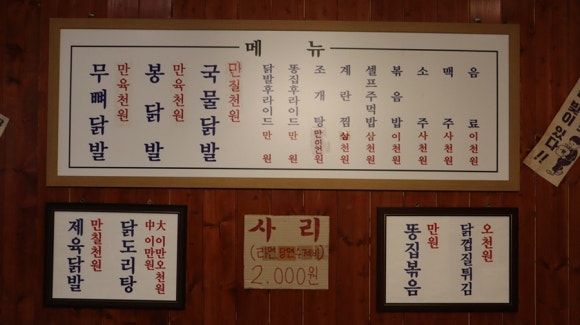 메 뉴
무뼈닭발
만육천원
봉닭발
만육천원
국물닭발
만칠천원
닭발후라이드 만 원
똥집후라이드 만 원
조개탕 만이천원
계란찜 삼천원
셀프주먹밥 삼천원
볶음밥 이천원
소 주 사천원
맥 주 사천원
음 료 이천원
제육닭발
만칠천원
닭도리탕
中 이만원
大 이만오천원
사 리
(라면 당면 수제비)
2.000원
똥집볶음
만원
닭껍질튀김
오천원
있다!!